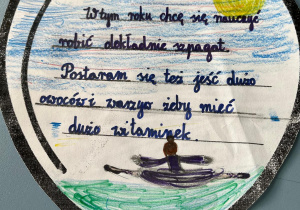 W tym roku chcę się nauczyć
robić dokładnie szpagat.
Postaram się też jeść dużo
owoców i warzyw żeby mieć
dużo witaminek.